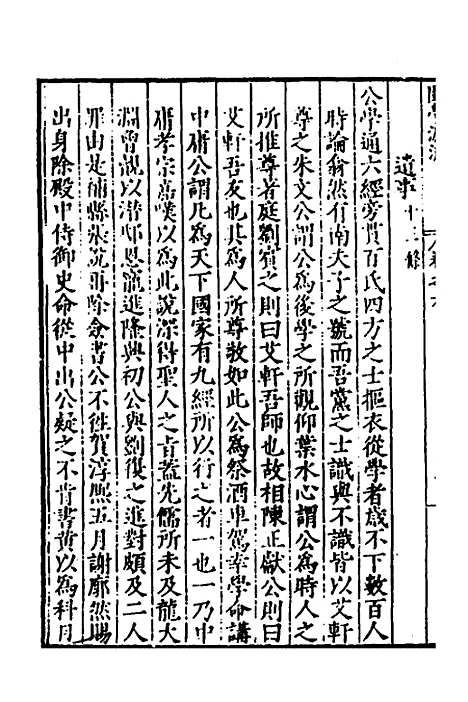 遺事十三條
公學通六經旁貫百氏四方之士摳衣從學者歲不下數百人
時論翕然有南夫子之號而吾黨之士識與不識皆以艾軒
尊之朱文公謂公為後學之所觀仰葉水心謂公為時人之
所推尊者庭劉賓之則曰艾軒吾師也故相陳正獻公則曰
艾軒吾友也其為人所尊敬如此公為祭酒車駕幸學命講
中庸公謂凡為天下國家有九經所以行之者一也一乃中
庸孝宗嘉嘆以為此說深得聖人之旨蓋先儒所未及龍大
淵曾覿以潜邸恩寵進隆興初公與劉復之進對頗及二人
罪由是補縣張說再除僉書公不徃賀淳熙五月謝廓然賜
出身除殿中侍御史命從中出公疑之不肯書黄以為科目